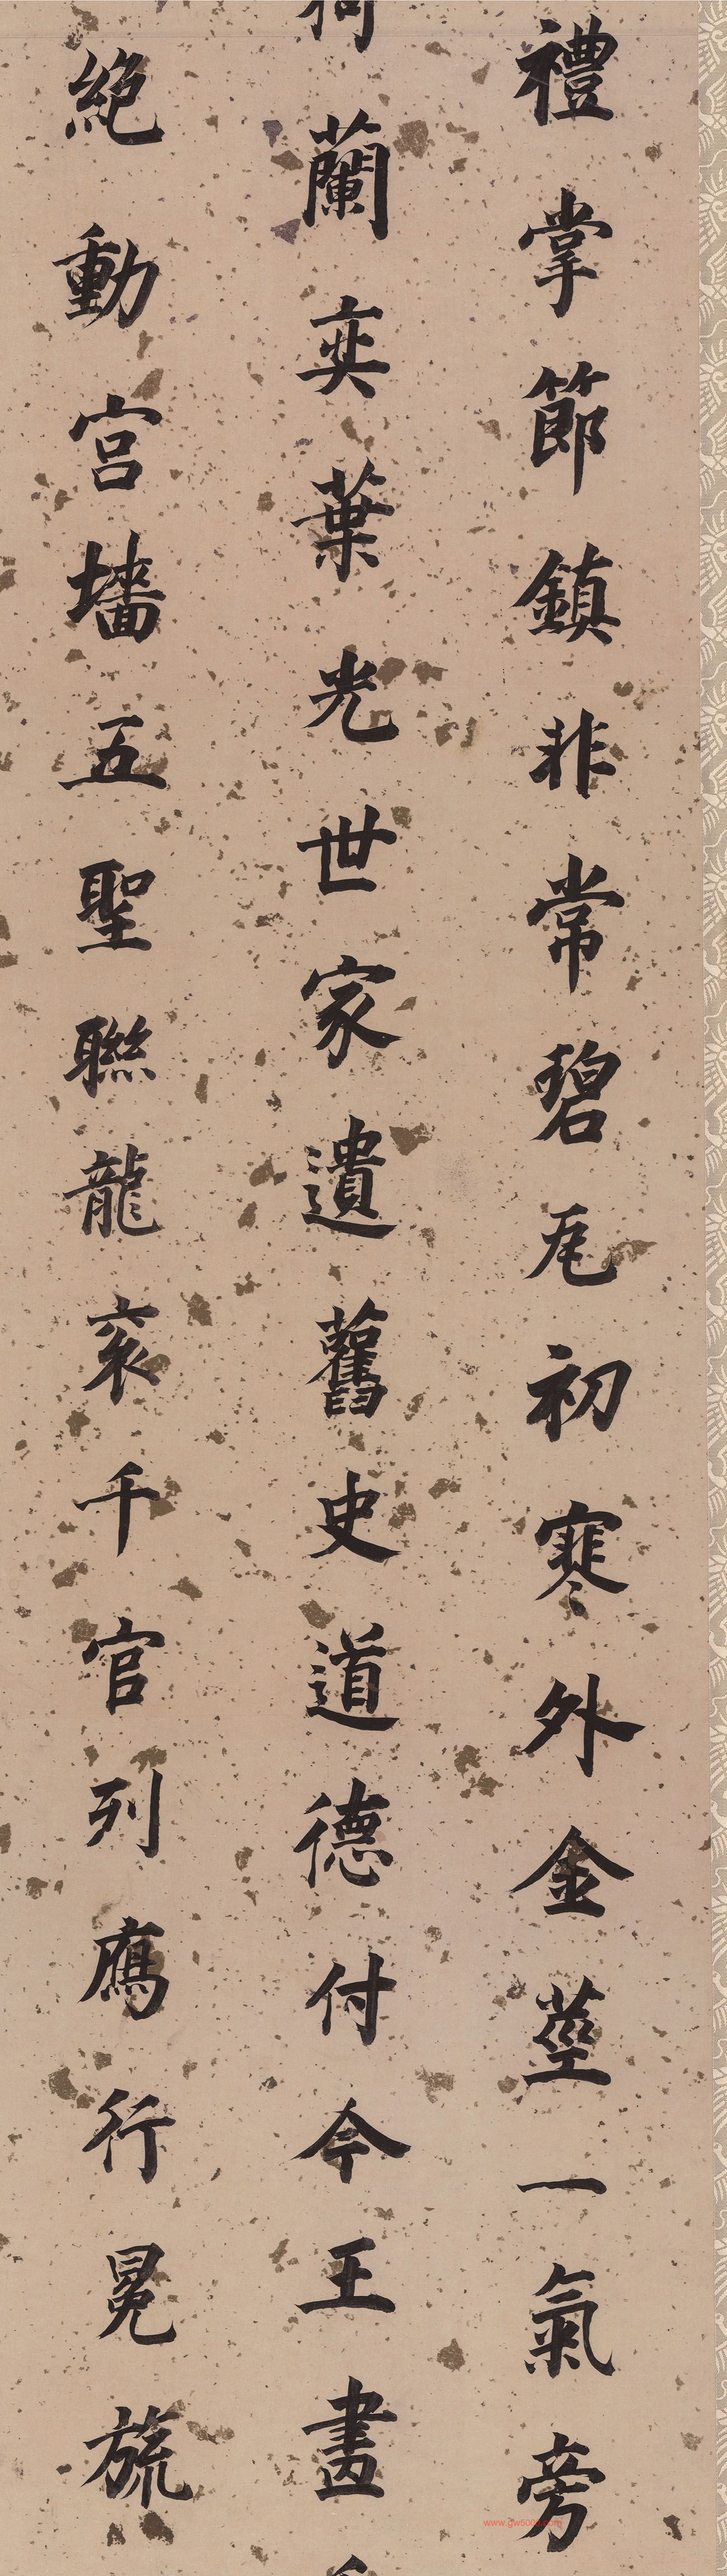 禮掌節鎮非常碧瓦初寒外金莖一氣旁
蘭奕葉光世家遺舊史道德付今王畫
絕動宮墻五聖聯龍衮千官列鴈行冕旒
www.gw500.com